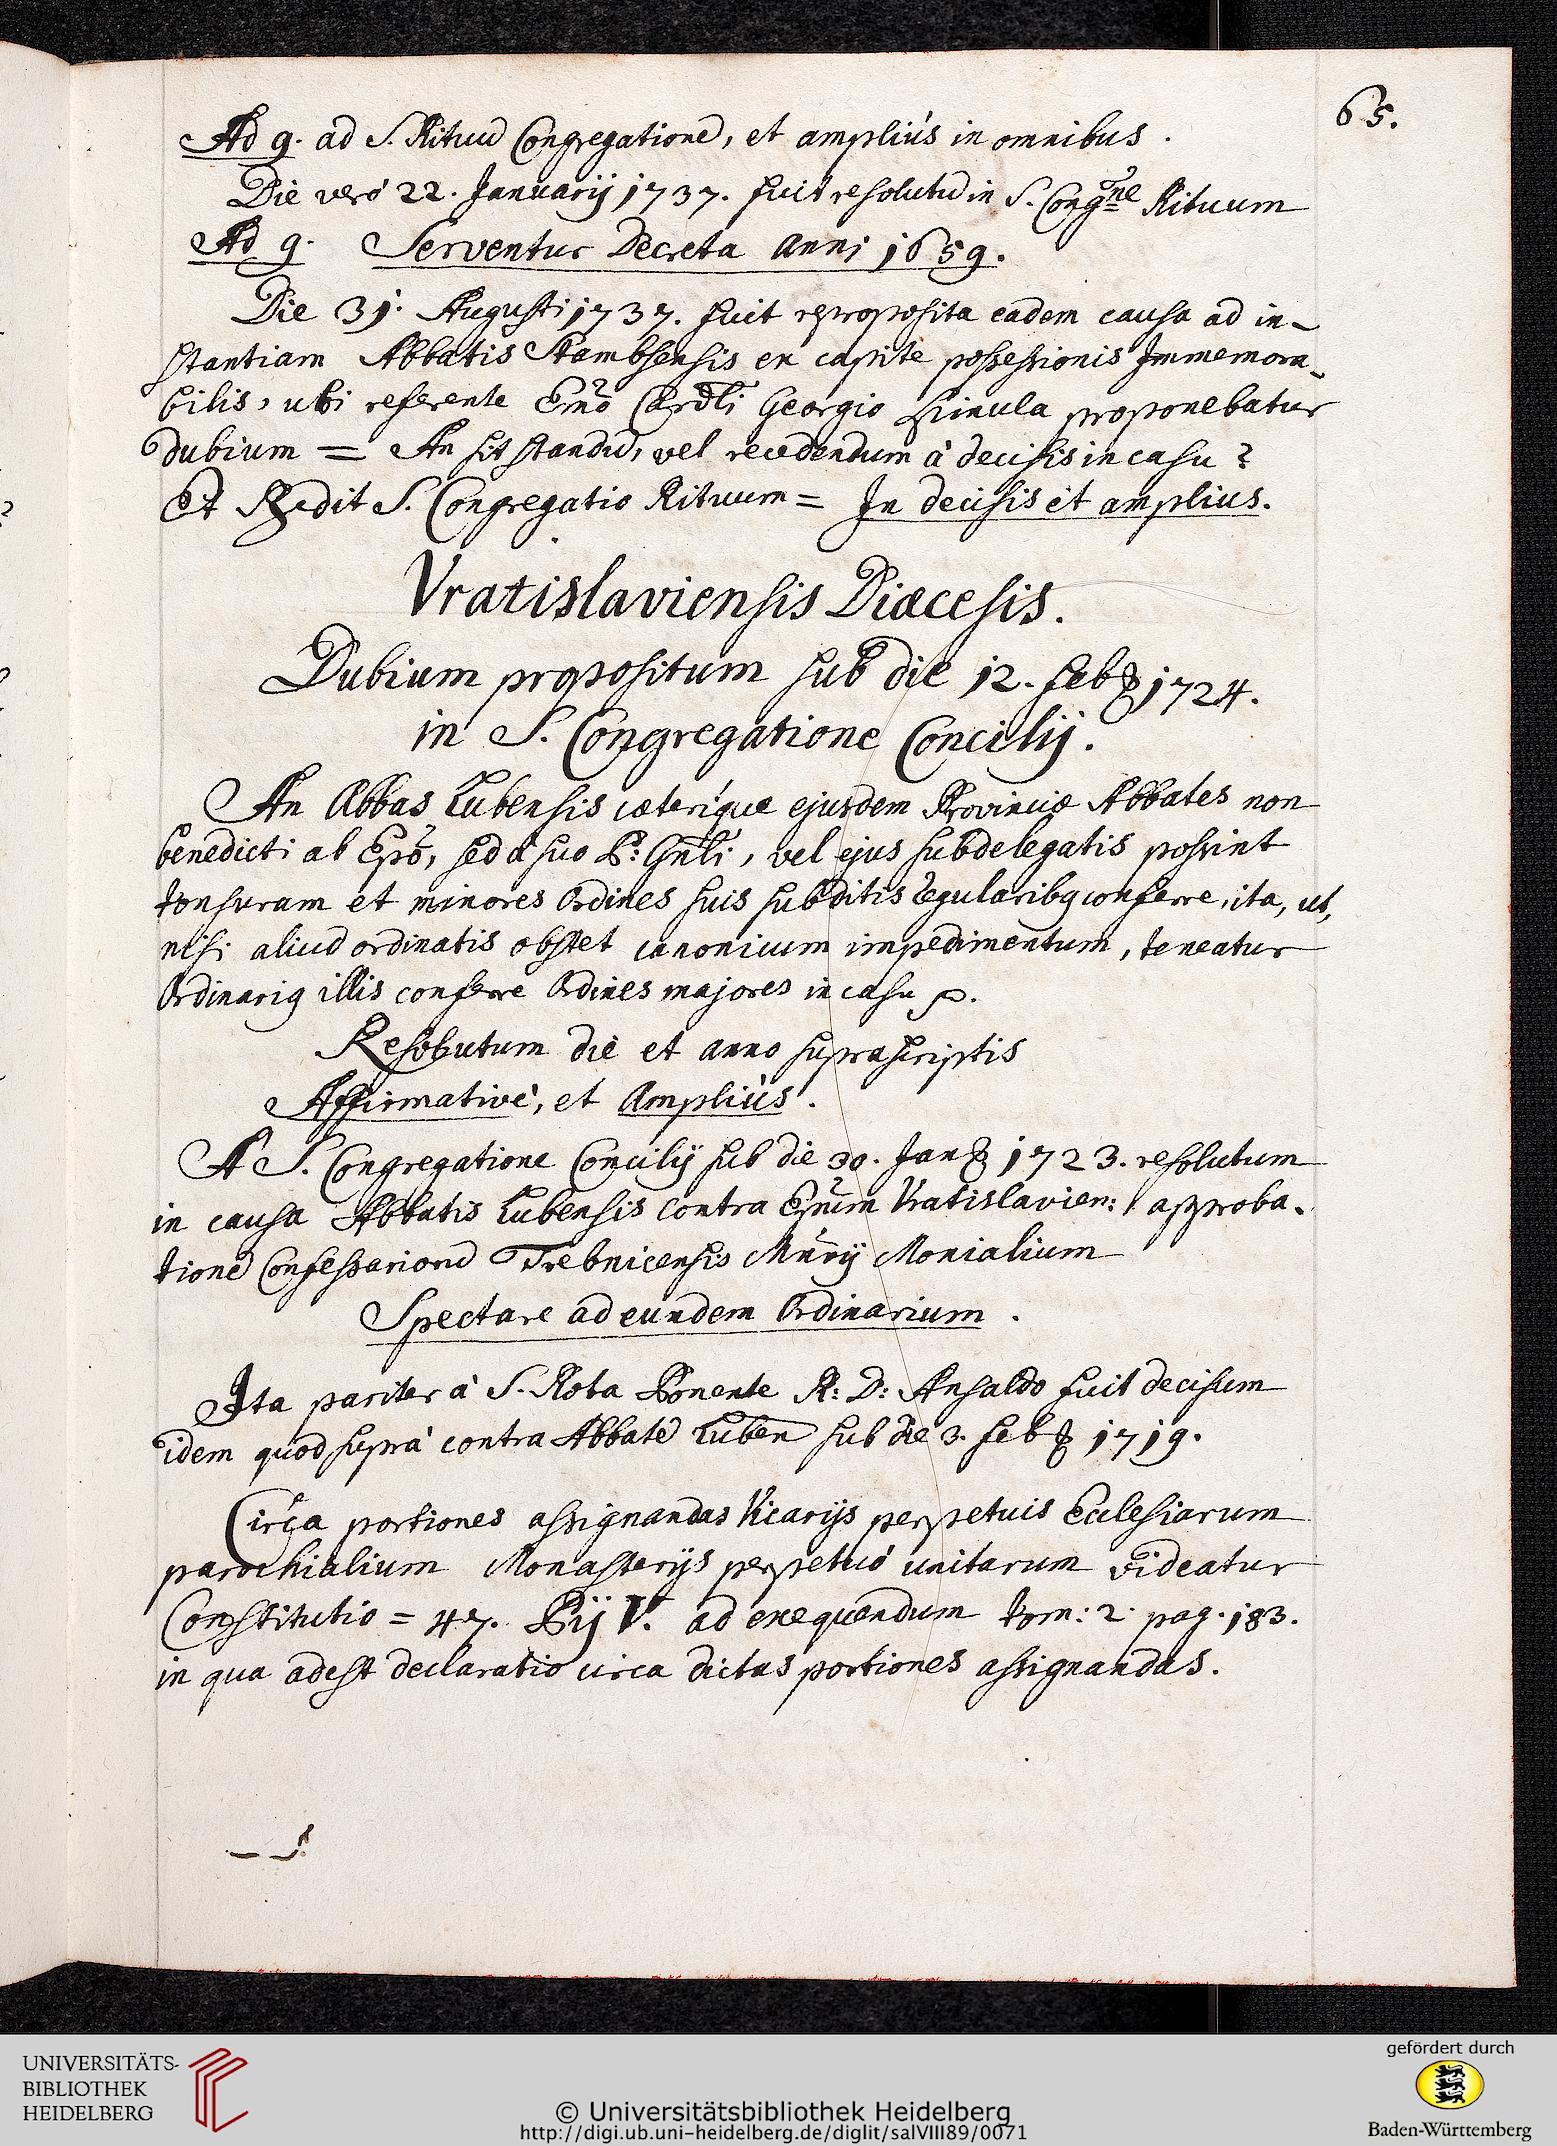 65.
Ad 9. ad S. Rituū Congregationē, et ampliùs in omnibus.
Die verò 22. Januarij 1737. fuit resolutū in S. Congne Rituum
Ad 9. Serventur Decreta anni 1659.
Die 31. Augusti 1737. fuit reproposita eadem causa ad in-
stantiam Abbatis Stambsensis ex capite possessionis Immemora-
bilis, ubi referente Emo Cardli Georgio Spinula proponebatur
dubium = An sit standū, vel recedendum à decisis in casu?
Et Rescredit S. Congregatio Rituum = In decisis et amplius.
Vratislaviensis Diæcesis.
Dubium propositum sub die 12. feb. 1724.
in S. Congregatione Concilij.
An Abbas Lubensis cæteríque ejusdem Provinciæ Abbates non
benedicti ab Epõ, sed à suo P: Gnli, vel ejus subdelegatis possint
tonsuram et minores Ordines suis subditis regularibq conferre, ita, ut,
nisi aliud ordinatis obstet canonicum impedimentum, teneatur
Ordinariq illis conferre Ordines majores in casu p.
Resolutum die et anno suprascriptis
Affirmativè, et Ampliùs.
A S. Congregatione Concilij sub die 30. Jan. 1723. resolutum
in causa Abbatis Lubensis contra Epũm Vratislavien: approba-
tionē Confessariorū Trebnicensis Mnrij Monialium
Spectare ad eundem Ordinarium.
Ita pariter à S. Rota Ponente R: D: Ansaldo fuit decisum
idem quod suprà contra Abbatē Luben sub die 3. feb. 1719.
Circa portiones assignandas Vicarijs perpetuis Ecclesiarum
parochialium Monasterijs perpetuò unitarum videatur
Constitutio = 47. Pij V. ad exequendum tom: 2. pag. 183.
in qua adest declaratio circa dictas portiones assignandas.
UNIVERSITÄTS-
BIBLIOTHEK
HEIDELBERG
© Universitätsbibliothek Heidelberg
http://digi.ub.uni-heidelberg.de/diglit/salVIII89/0071
gefördert durch
Baden-Württemberg